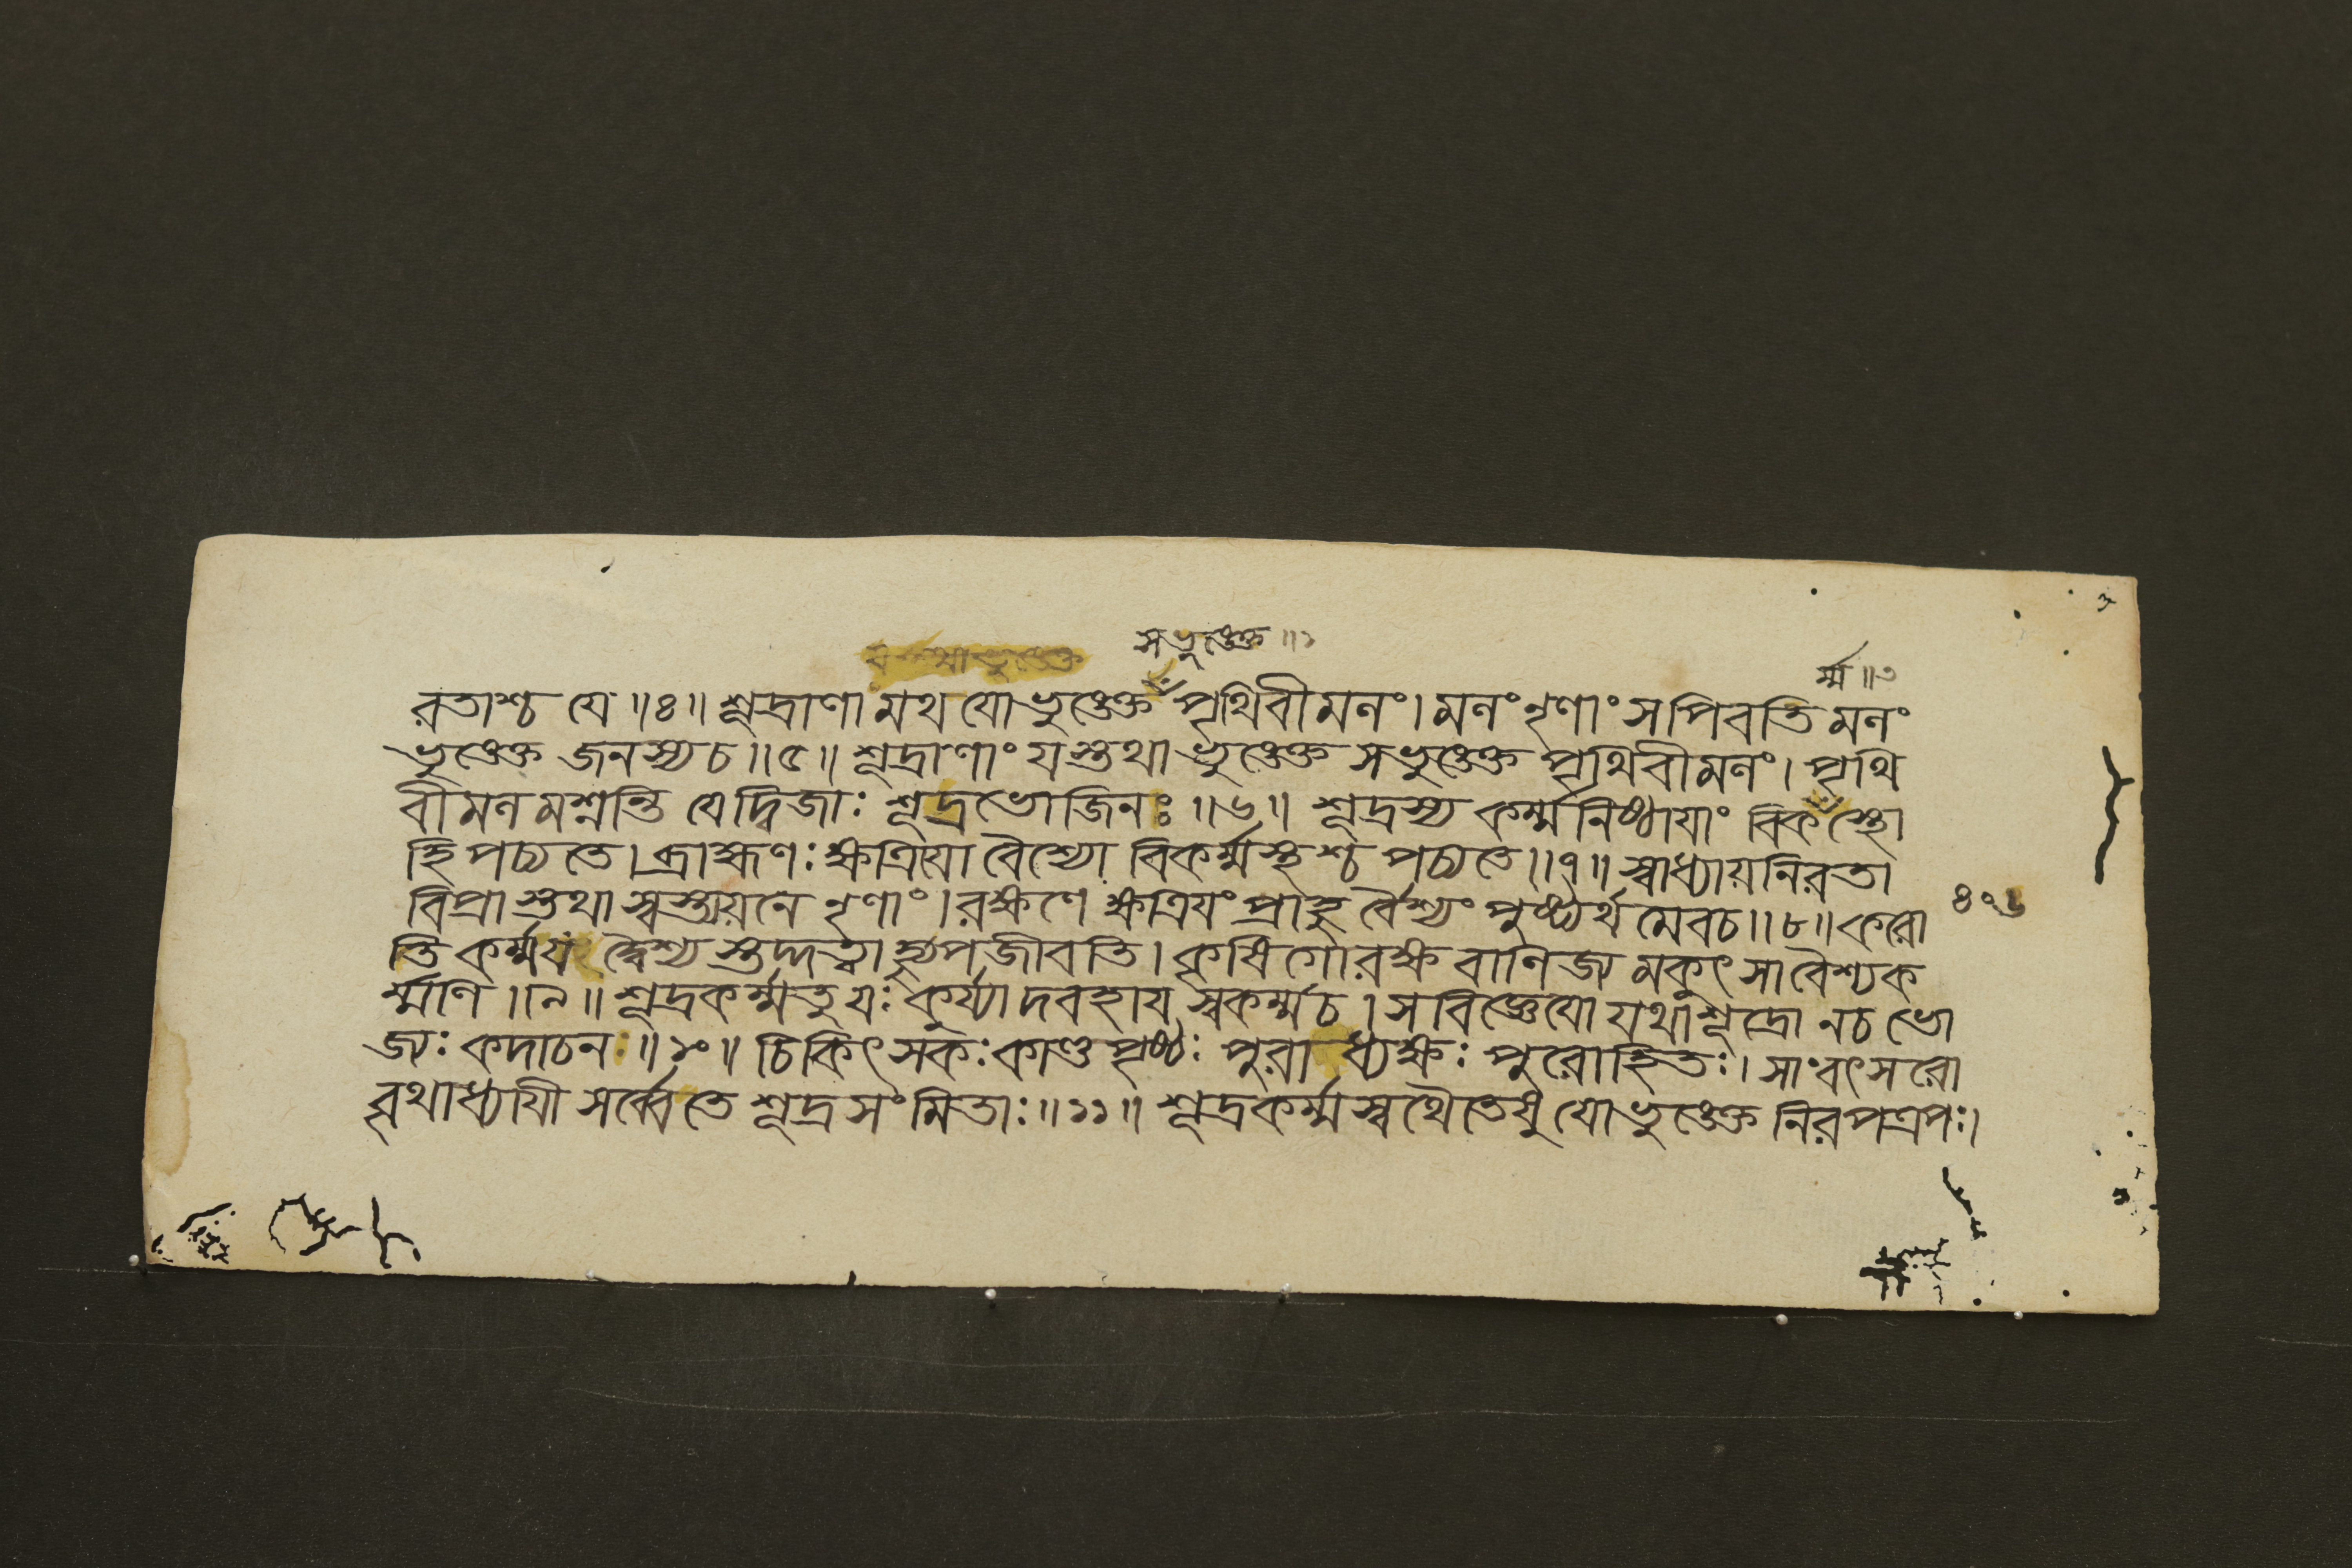 সভুঙেক্ত ॥১
র্ম্ম ॥৩
রতাশ্চ যে ॥৪॥ শূদ্রাণামথ যো ভুঙেক্ত পৃথিবীমলং। মলং নৃণাং স পিবতি মলং
ভুঙেক্ত জনস্য চ ॥৫॥ শূদ্রাণাং যস্তথা ভুঙেক্ত স ভুঙেক্ত পৃথিবীমলং। পৃথি
বীমলমশ্নন্তি যে দ্বিজাঃ শূদ্রভোজিনঃ ॥৬॥ শূদ্রস্য কর্ম্মনিষ্ঠায়াং বিকস্থো
হি পচ্যতে। ব্রাহ্মণঃ ক্ষত্রিয়ো বৈশ্যো বিকর্ম্মস্থশ্চ পচ্যতে ॥৭॥ স্বাধ্যায়নিরতা
বিপ্রাস্তথা স্বস্ত্যয়নে নৃণাং। রক্ষণে ক্ষত্রিয়ং প্রাহু র্বৈশ্যং পুষ্ট্যর্থমেব চ ॥৮॥ করো
৪০৬
তি কর্ম্ম যদ্বৈশ্যস্তদ্গত্বা হ্যুপজীবতি। কৃষিগোরক্ষবাণিজ্যমকুৎসা বৈশ্যক
র্ম্মণি ॥৯॥ শূদ্রকর্ম্ম তু যঃ কুর্য্যাদবহায় স্বকর্ম্ম চ। স বিজ্ঞেয়ো যথা শূদ্রো ন চ ভো
জ্যঃ কদাচন ॥১০॥ চিকিৎসকঃ কাণ্ডপৃষ্ঠঃ পুরাধ্যক্ষঃ পুরোহিতঃ। সাংবৎসরো
বৃথাধ্যায়ী সর্ব্বে তে শূদ্রসংমিতাঃ ॥১১॥ শূদ্রকর্ম্মস্বথৈতেষু যো ভুঙেক্ত নিরপত্রপঃ।